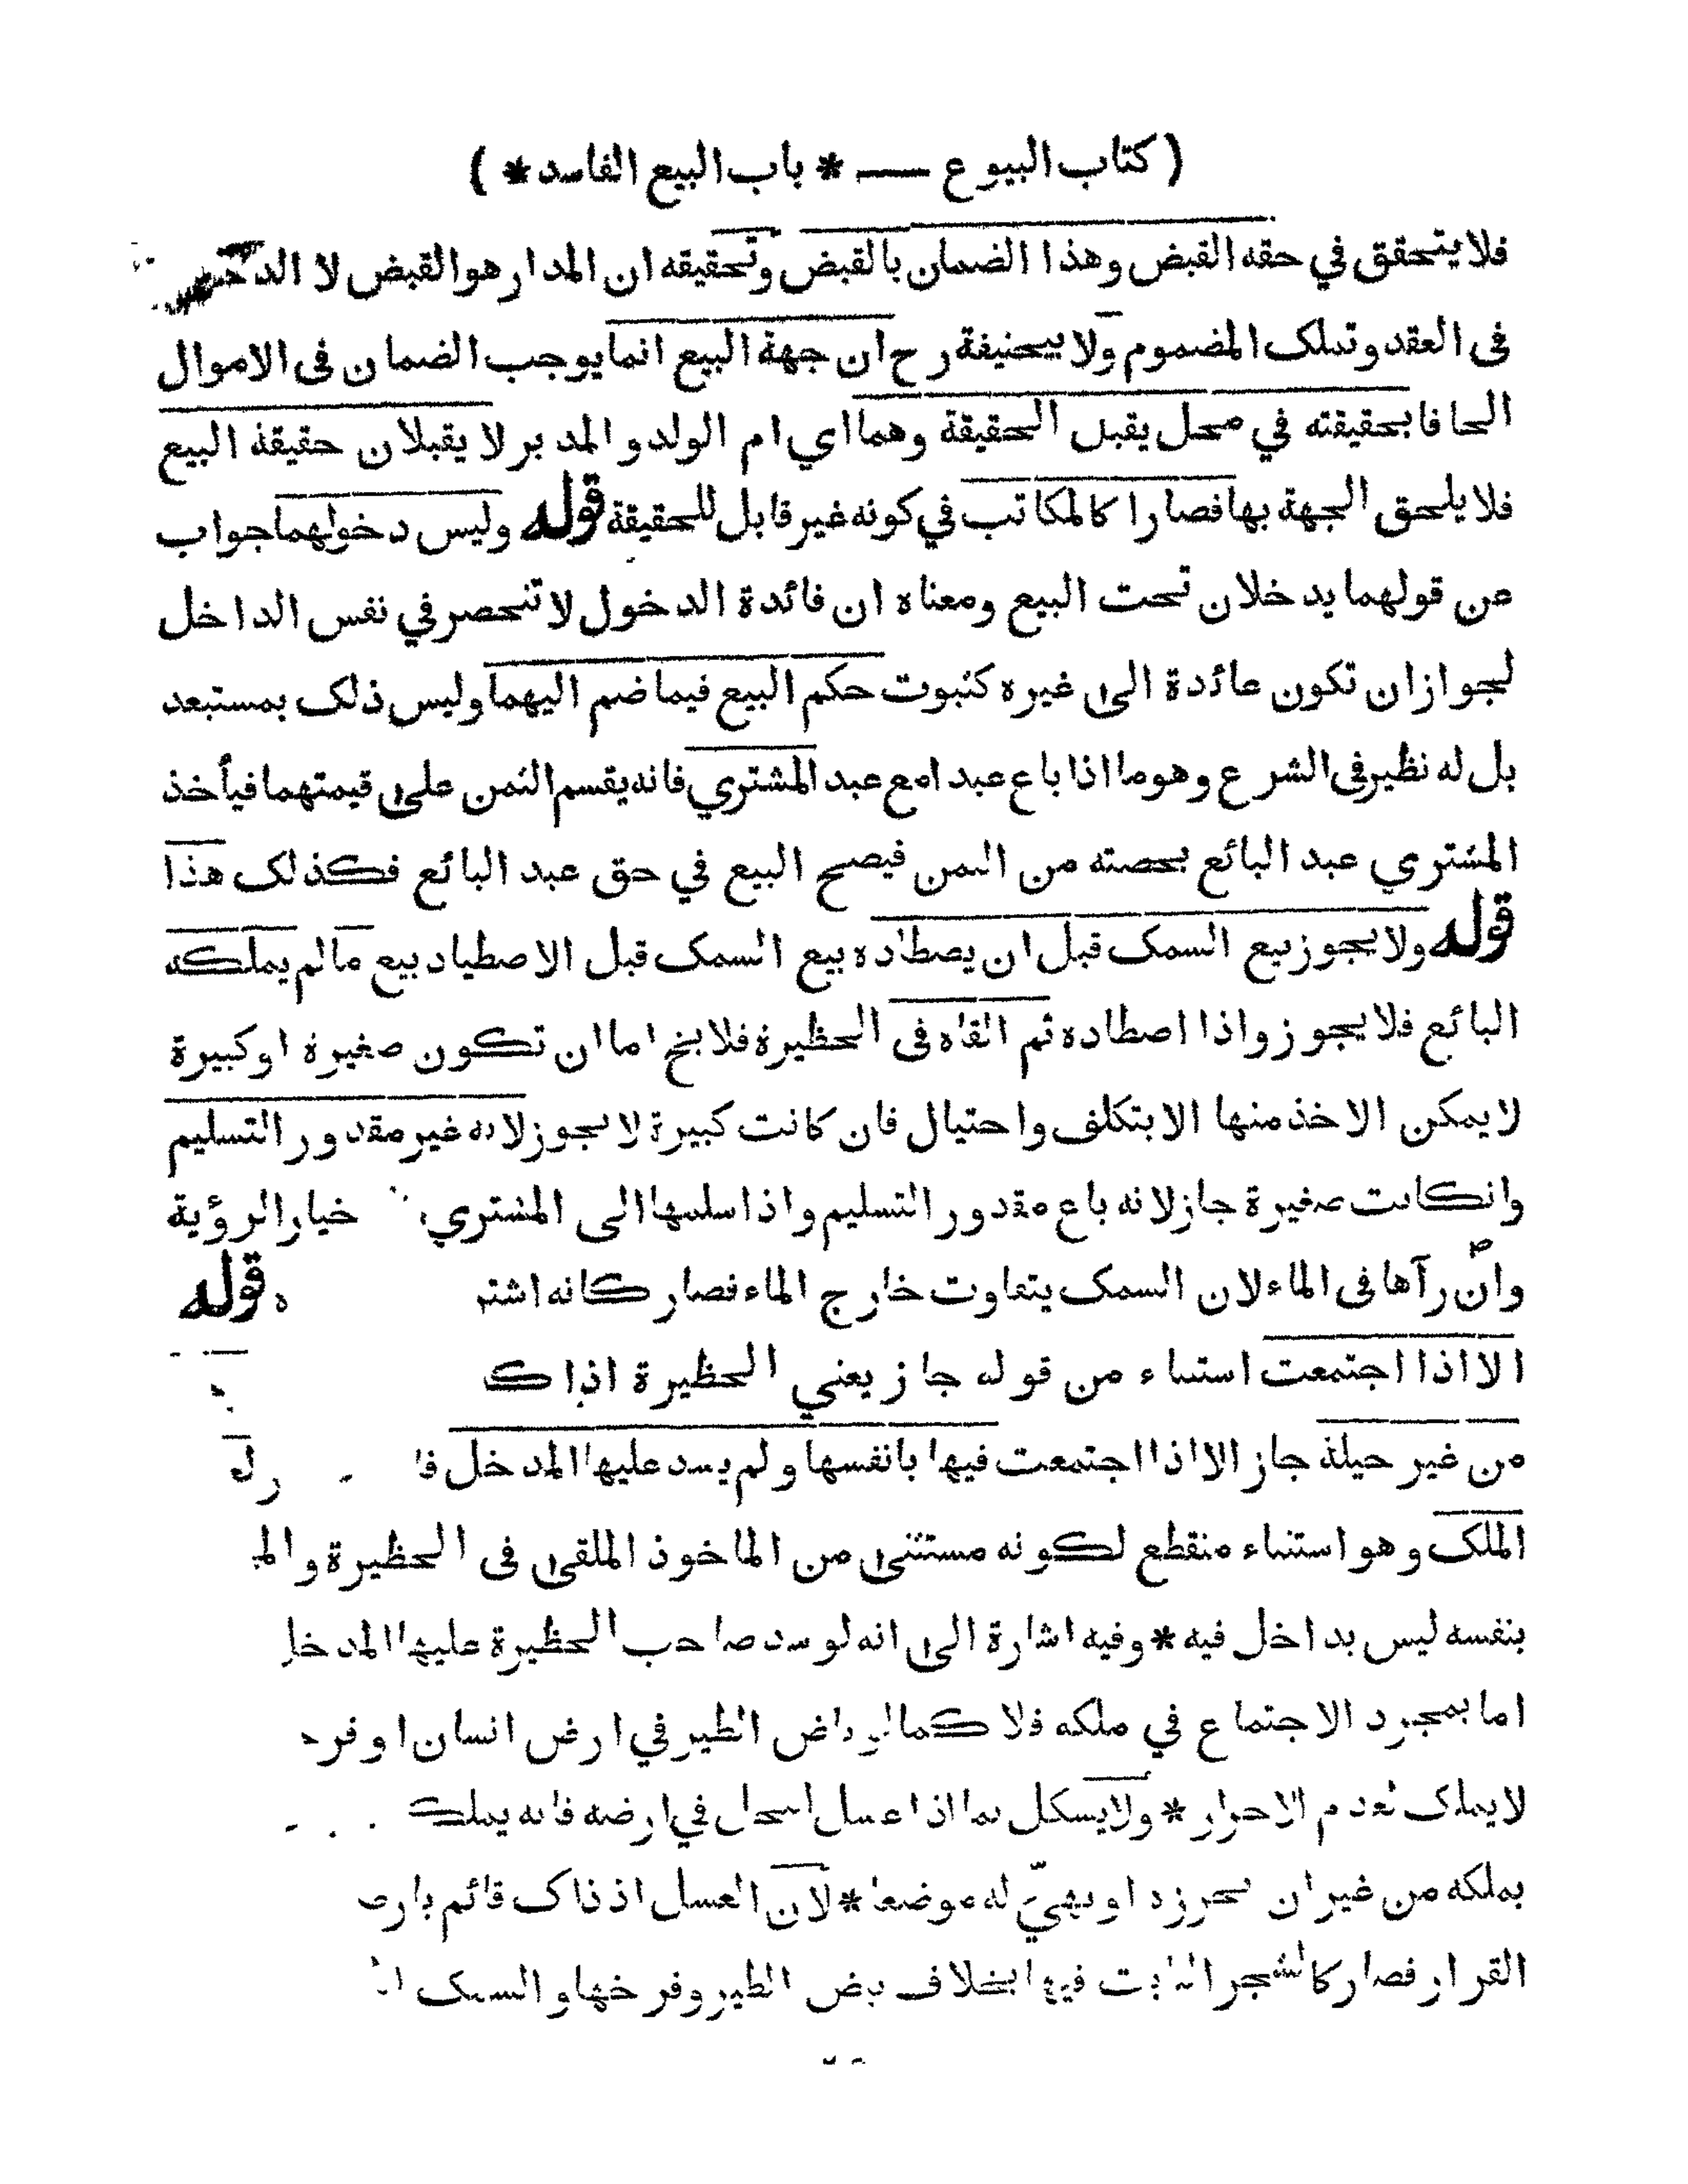 ( كتاب البيوع — * باب البيع الفاسد * )
فلا يتحقق في حقه القبض وهذا الضمان بالقبض وتحقيقه ان المدار هو القبض لا
في العقد وتملك المضموم ولابيحنيفة رح ان جهة البيع انما يوجب الضمان في الاموال
الحاقا بحقيقته في محل يقبل الحقيقة وهما اي ام الولد والمدبر لا يقبلان حقيقة البيع
فلا يلحق الجهة بها فصارا كالمكاتب في كونه غير قابل للحقيقة قوله وليس دخولهما جواب
عن قولهما يدخلان تحت البيع ومعناه ان فائدة الدخول لا تنحصر في نفس الداخل
لجواز ان تكون عائدة الى غيره كثبوت حكم البيع فيما ضم اليهما وليس ذلك بمستبعد
بل له نظير في الشرع وهو ما اذا باع عبدا مع عبد المشتري فانه يقسم الثمن على قيمتهما فيأخذ
المشتري عبد البائع بحصته من الثمن فيصح البيع في حق عبد البائع فكذلك هذا
قوله ولا يجوز بيع السمك قبل ان يصطاده بيع السمك قبل الاصطياد بيع مالم يملكه
البائع فلا يجوز واذا اصطاده ثم القاه في الحظيرة فلايخ اما ان تكون صغيرة او كبيرة
لا يمكن الاخذ منها الا بتكلف واحتيال فان كانت كبيرة لا يجوز لانه غير مقدور التسليم
وانكانت صغيرة جاز لانه باع مقدور التسليم واذا سلمها الى المشتري خيار الرؤية
وان رآها في الماء لان السمك يتفاوت خارج الماء فصار كانه قوله
الا اذا اجتمعت استثناء من قوله جاز يعني الحظيرة اذا
من غير حيلة جاز الا اذا اجتمعت فيها بانفسها ولم يسد عليها المدخل
الملك وهو استثناء منقطع لكونه مستثنى من الماخوذ الملقى في الحظيرة
بنفسه ليس بداخل فيه * وفيه اشارة الى انه لو سد صاحب الحظيرة عليها
اما بمجرد الاجتماع في ملكه فلا كما لو باض الطير في ارض انسان او
لا يملك لعدم الاحراز * ولا يشكل بما اذا عسل النحل في ارضه فانه يملكه
بملكه من غير ان يحرزه او يهيّ له موضعا * لان العسل اذ ذاك قائم
القرار فصار كالشجر النابت فيها بخلاف بيض الطير وفرخها والسمك